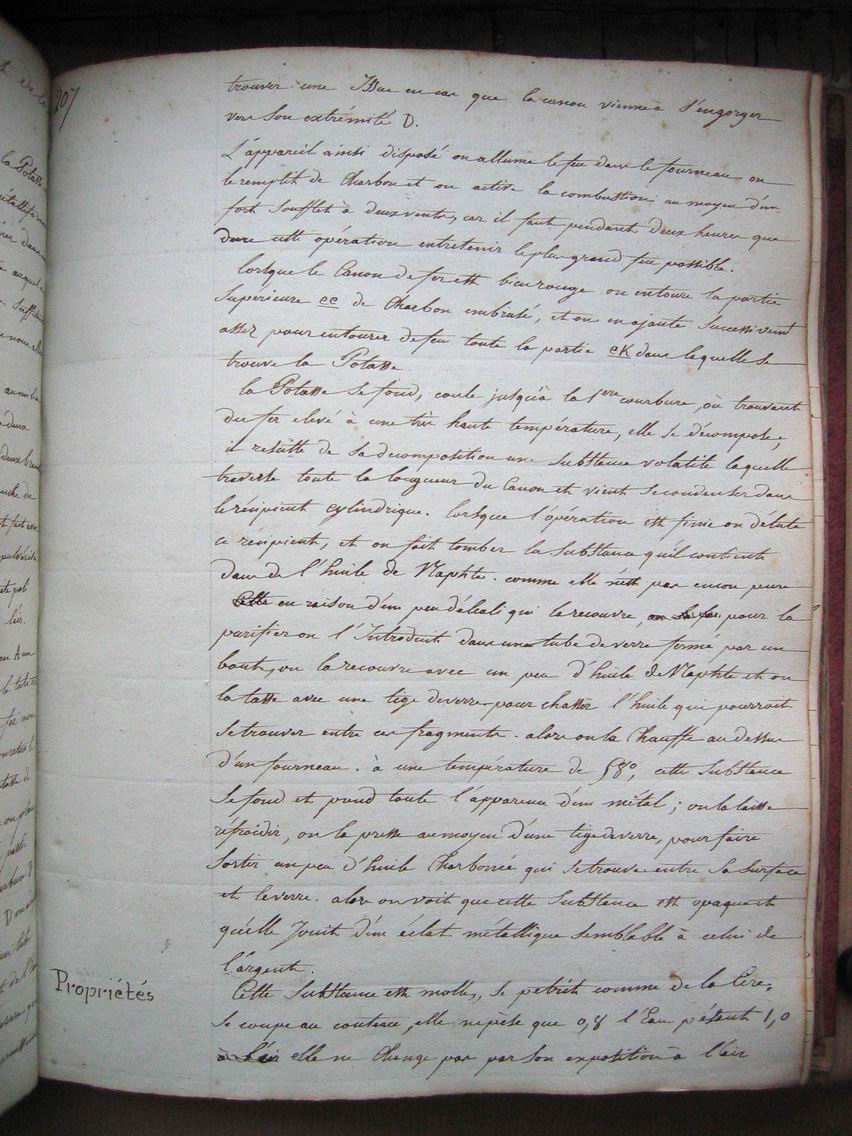 207
trouver une Issue en cas que le canon vienne à s'engorger
vers son extrémité D.
L'appareil ainsi disposé on allume le feu dans le fourneau on
le remplit de Charbon et on active la combustion au moyen d'un
fort soufflet à deux vents, car il faut pendant deux heures que
dure cette opération entretenir le plus grand feu possible.
lorsque le Canon de fer est bien rouge on entoure la partie
Supérieure ec de Charbon embrasé, et on en ajoute successivemt
assez pour entourer de feu toute la partie eK dans laquelle se
trouve la Potasse.
la Potasse se fond, coule jusqu'à la 1ere courbure, où trouvant
du fer elevé à une très haute température, elle se décompose;
il resulte de sa decomposition une substance volatile laquelle
traverse toute la longueur du Canon et vient se condenser dans
le récipient cylindrique. lorsque l'opération est finie on délute
ce récipient, et on fait tomber la substance qu'il contient
dans de l'huile de Naphte. comme elle n'est pas encore pure
en raison d'un peu d'alcali qui la recouvre, pour la
purifier on l'Introduit dans un tube de verre fermé par un
bout, on la recouvre avec un peu d'huile de Naphte et on
la tasse avec une tige de verre pour chasser l'huile qui pourrait
se trouver entre ces fragments. alors on la Chauffe au dessus
d'un fourneau. à une température de 58°, cette substance
se fond et prend toute l'apparence d'un métal; on la laisse
réfroidir, on la presse au moyen d'une tige de verre, pour faire
sortir un peu d'huile Charbonée qui se trouve entre sa surface
et le verre. alors on voit que cette Substance est opaque et
qu'elle Jouit d'un éclat métallique semblable à celui de
l'argent.
Propriétés
Cette Substance est molle, se petrit comme de la Cire,
se coupe au couteau, elle ne pèse que 0,8 l'Eau pésant 1,0
elle ne Change pas par son exposition à l'air